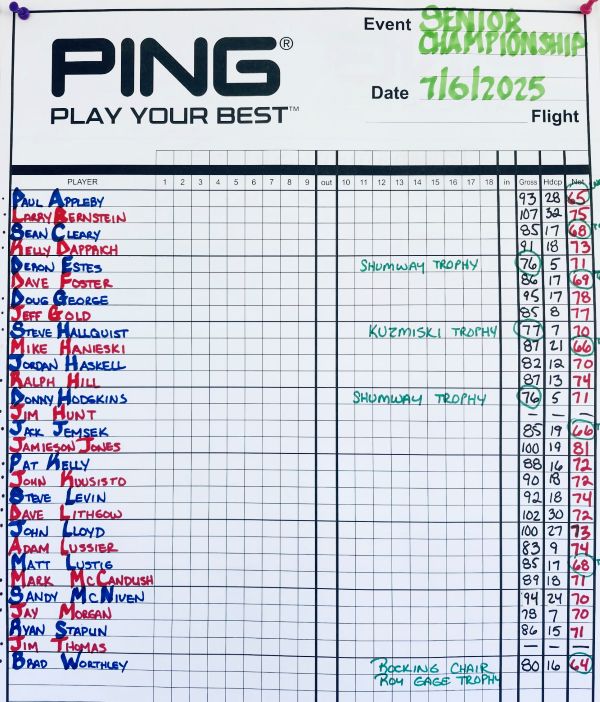 Event SENIOR
CHAMPIONSHIP
PING®
Date 7/6/2025
PLAY YOUR BEST™
Flight
PLAYER 1 2 3 4 5 6 7 8 9 out 10 11 12 13 14 15 16 17 18 in Gross Hdcp Net
PAUL APPLEBY 93 28 65
LARRY BERNSTEIN 107 32 75
SEAN CLEARY 85 17 68
KELLY DAPPRICH 91 18 73
DERON ESTES SHUMWAY TROPHY 76 5 71
DAVE FOSTER 86 17 69
DOUG GEORGE 95 17 78
JEFF GOLD 85 8 77
STEVE HALLQUIST KUZMISKI TROPHY 77 7 70
MIKE HANIESKI 87 21 66
JORDAN HASKELL 82 12 70
RALPH HILL 87 13 74
DONNY HODGKINS SHUMWAY TROPHY 76 5 71
JIM HUNT — — —
JACK JEMSEK 85 19 66
JAMIESON JONES 100 19 81
PAT KELLY 88 16 72
JOHN KUUSISTO 90 18 72
STEVE LEVIN 92 18 74
DAVE LITHGOW 102 30 72
JOHN LLOYD 100 27 73
ADAM LUSSIER 83 9 74
MATT LUSTIG 85 17 68
MARK MCCANDLISH 89 18 71
SANDY MCNIVEN 94 24 70
JAY MORGAN 78 7 70
RYAN STAPLIN 86 15 71
JIM THOMAS — — —
BRAD WORTHLEY ROCKING CHAIR 80 16 64
ROY GAGE TROPHY